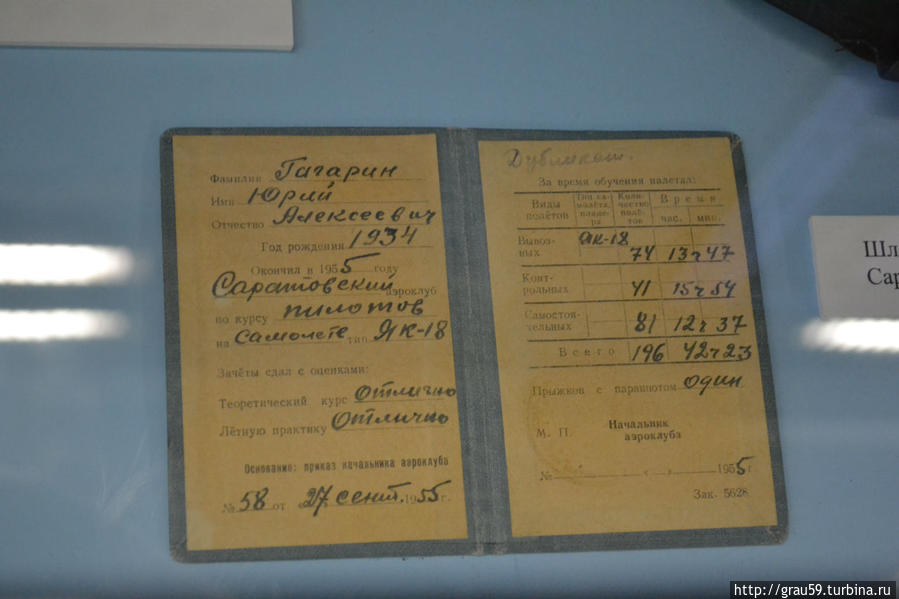 Фамилия Гагарин
Имя Юрий
Отчество Алексеевич
Год рождения 1934
Окончил в 1955 году
Саратовский аэроклуб
по курсу пилотов
на самолете тип ЯК-18
Зачёты сдал с оценками:
Теоретический курс отлично
Лётную практику отлично
Основание: приказ начальника аэроклуба
№ 58 от 27 сент. 1955 г.
Дубликат.
За время обучения налетал:
Виды полётов | Тип самолёта, планера | Количество полётов | Время час. мин.
Вывозных ЯК-18 74 13 ч 47
Контрольных 41 15 ч 59
Самостоятельных 81 12 ч 37
Всего 196 42 ч 23
Прыжков с парашютом один
М. П. Начальник
аэроклуба
№ " " 1955 г.
Зак. 5628
Шл
Сар
http://grau59.turbina.ru